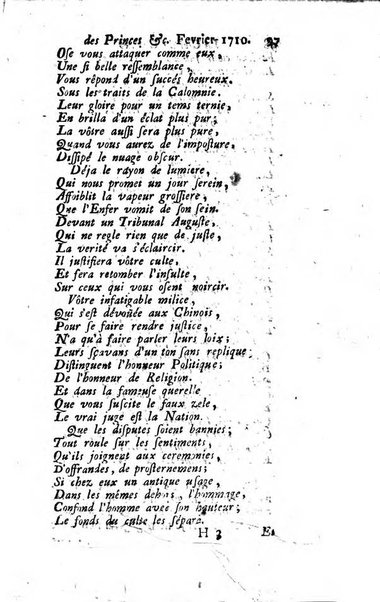 des Princes &c. Fevrier 1710. 97
Ose vous attaquer comme eux,
Une si belle ressemblance,
Vous répond d'un succés heureux.
Sous les traits de la Calomnie.
Leur gloire pour un tems ternie,
En brilla d'un éclat plus pur;
La vôtre aussi sera plus pure,
Quand vous aurez de l'imposture,
Dissipé le nuage obscur.
Déja le rayon de lumiere,
Qui nous promet un jour serein,
Affoiblit la vapeur grossiere,
Que l'Enfer vomit de son sein.
Devant un Tribunal Auguste,
Qui ne regle rien que de juste,
La verité va s'éclaircir.
Il justifiera vôtre culte,
Et fera retomber l'insulte,
Sur ceux qui vous osent noircir.
Vôtre infatigable milice,
Qui s'est dévoüée aux Chinois,
Pour se faire rendre justice,
N'a qu'à faire parler leurs loix;
Leurs sçavans d'un ton sans replique;
Distinguent l'honneur Politique;
De l'honneur de Religion.
Et dans la fameuse querelle
Que vous suscite le faux zele,
Le vrai juge est la Nation.
Que les disputes soient bannies;
Tout roule sur les sentiments,
Qu'ils joignent aux ceremonies,
D'offrandes, de prosternemens;
Si chez eux un antique usage,
Dans les mêmes dehors, l'hommage,
Confond l'homme avec son hauteur;
Le fonds du culte les sépare.
H 3 Et